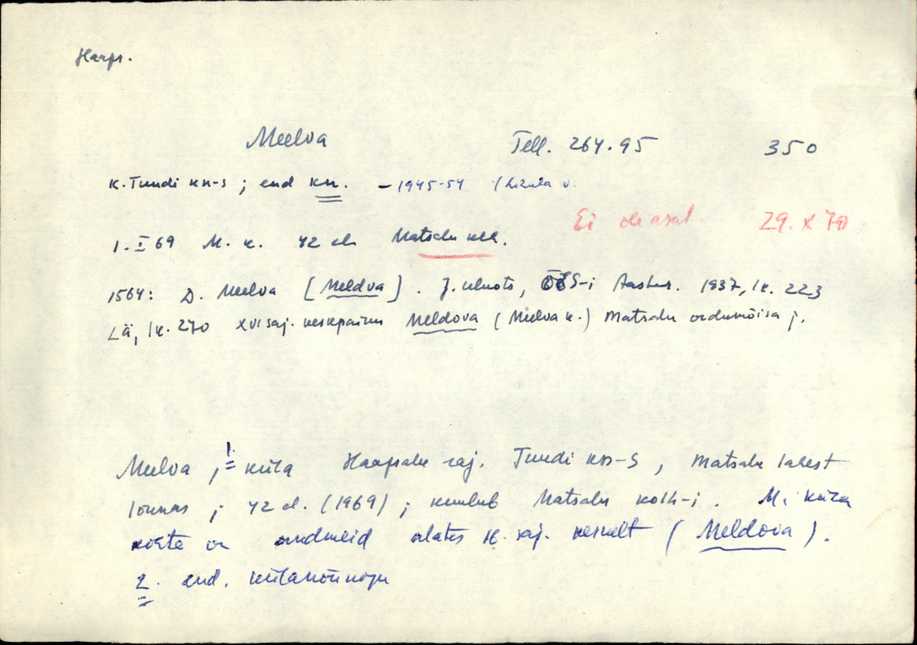 Haaps.
Meelva Tell. 264.95 350
K. Tuudi kn-s; end kn. – 1945-54 (Lihula
Ei ole asat 29. X 70
1. I 69 M. k. 42 el. Matsalu
1564: D. Meelva [Meldva]. J. Uluots, ÕES-i Aastar. 1937, lk. 223
Lä, lk. 270 XVI saj. keskpaiku Meldova (Meelva k.) Matsalu ordumõisa j.
Meelva, 1. küla Haapsalu raj. Tuudi kn-s, Matsalu lahest
lõunas; 42 el. (1969); kuulub Matsalu kolh-i. M. küla
kohta on andmeid alates 16. saj. keskelt (Meldova).
2. end. külanõukogu